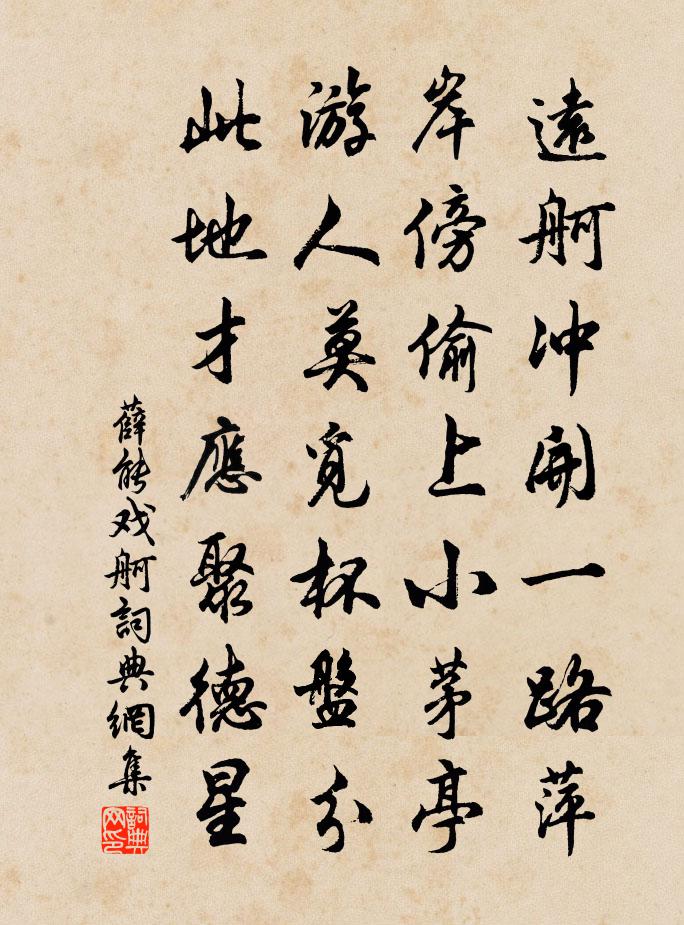 遠舸冲開一路萍
岸傍偷上小茅亭
游人莫覓杯盤分
此地才應聚德星
薛能戏舸詞典網集
詞典网印